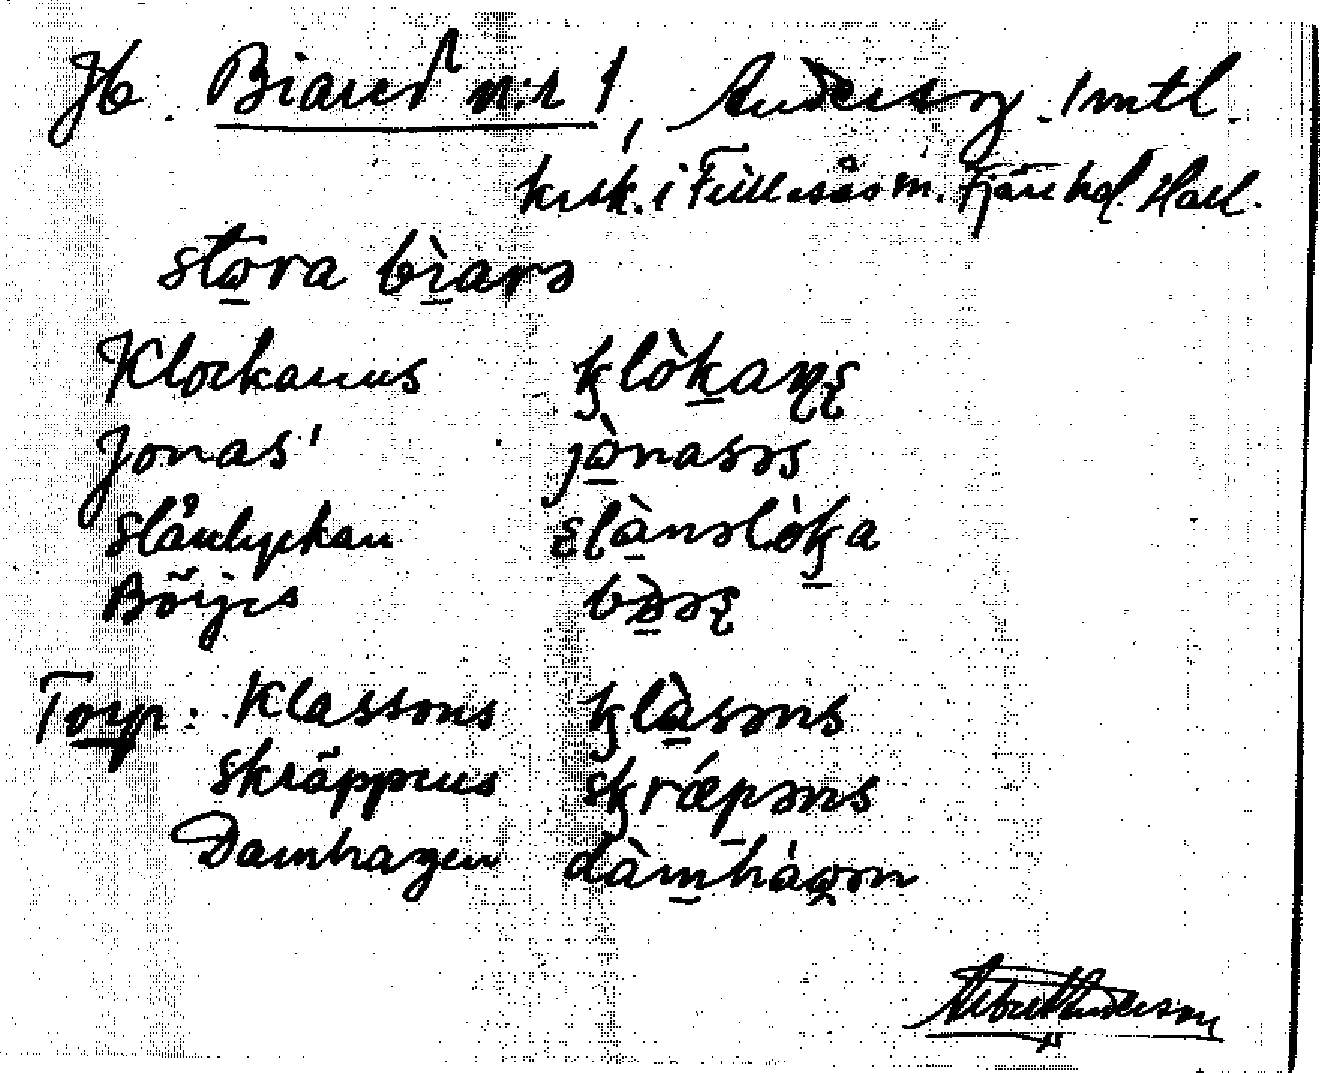 Hb. Biared n:r 1, Anderson. 1 mtl.
krsk. i Fjärehd. Hall.
stora biarə
Klockarens klòkaŋs
Jonas' jònasəs
Slånlyckan slànsløka
Börjes bə̀rəs
Torp: Klassons klàsəns
Skräppens skræ̀pəns
Damhagen dàmhágən
Albert Anderson